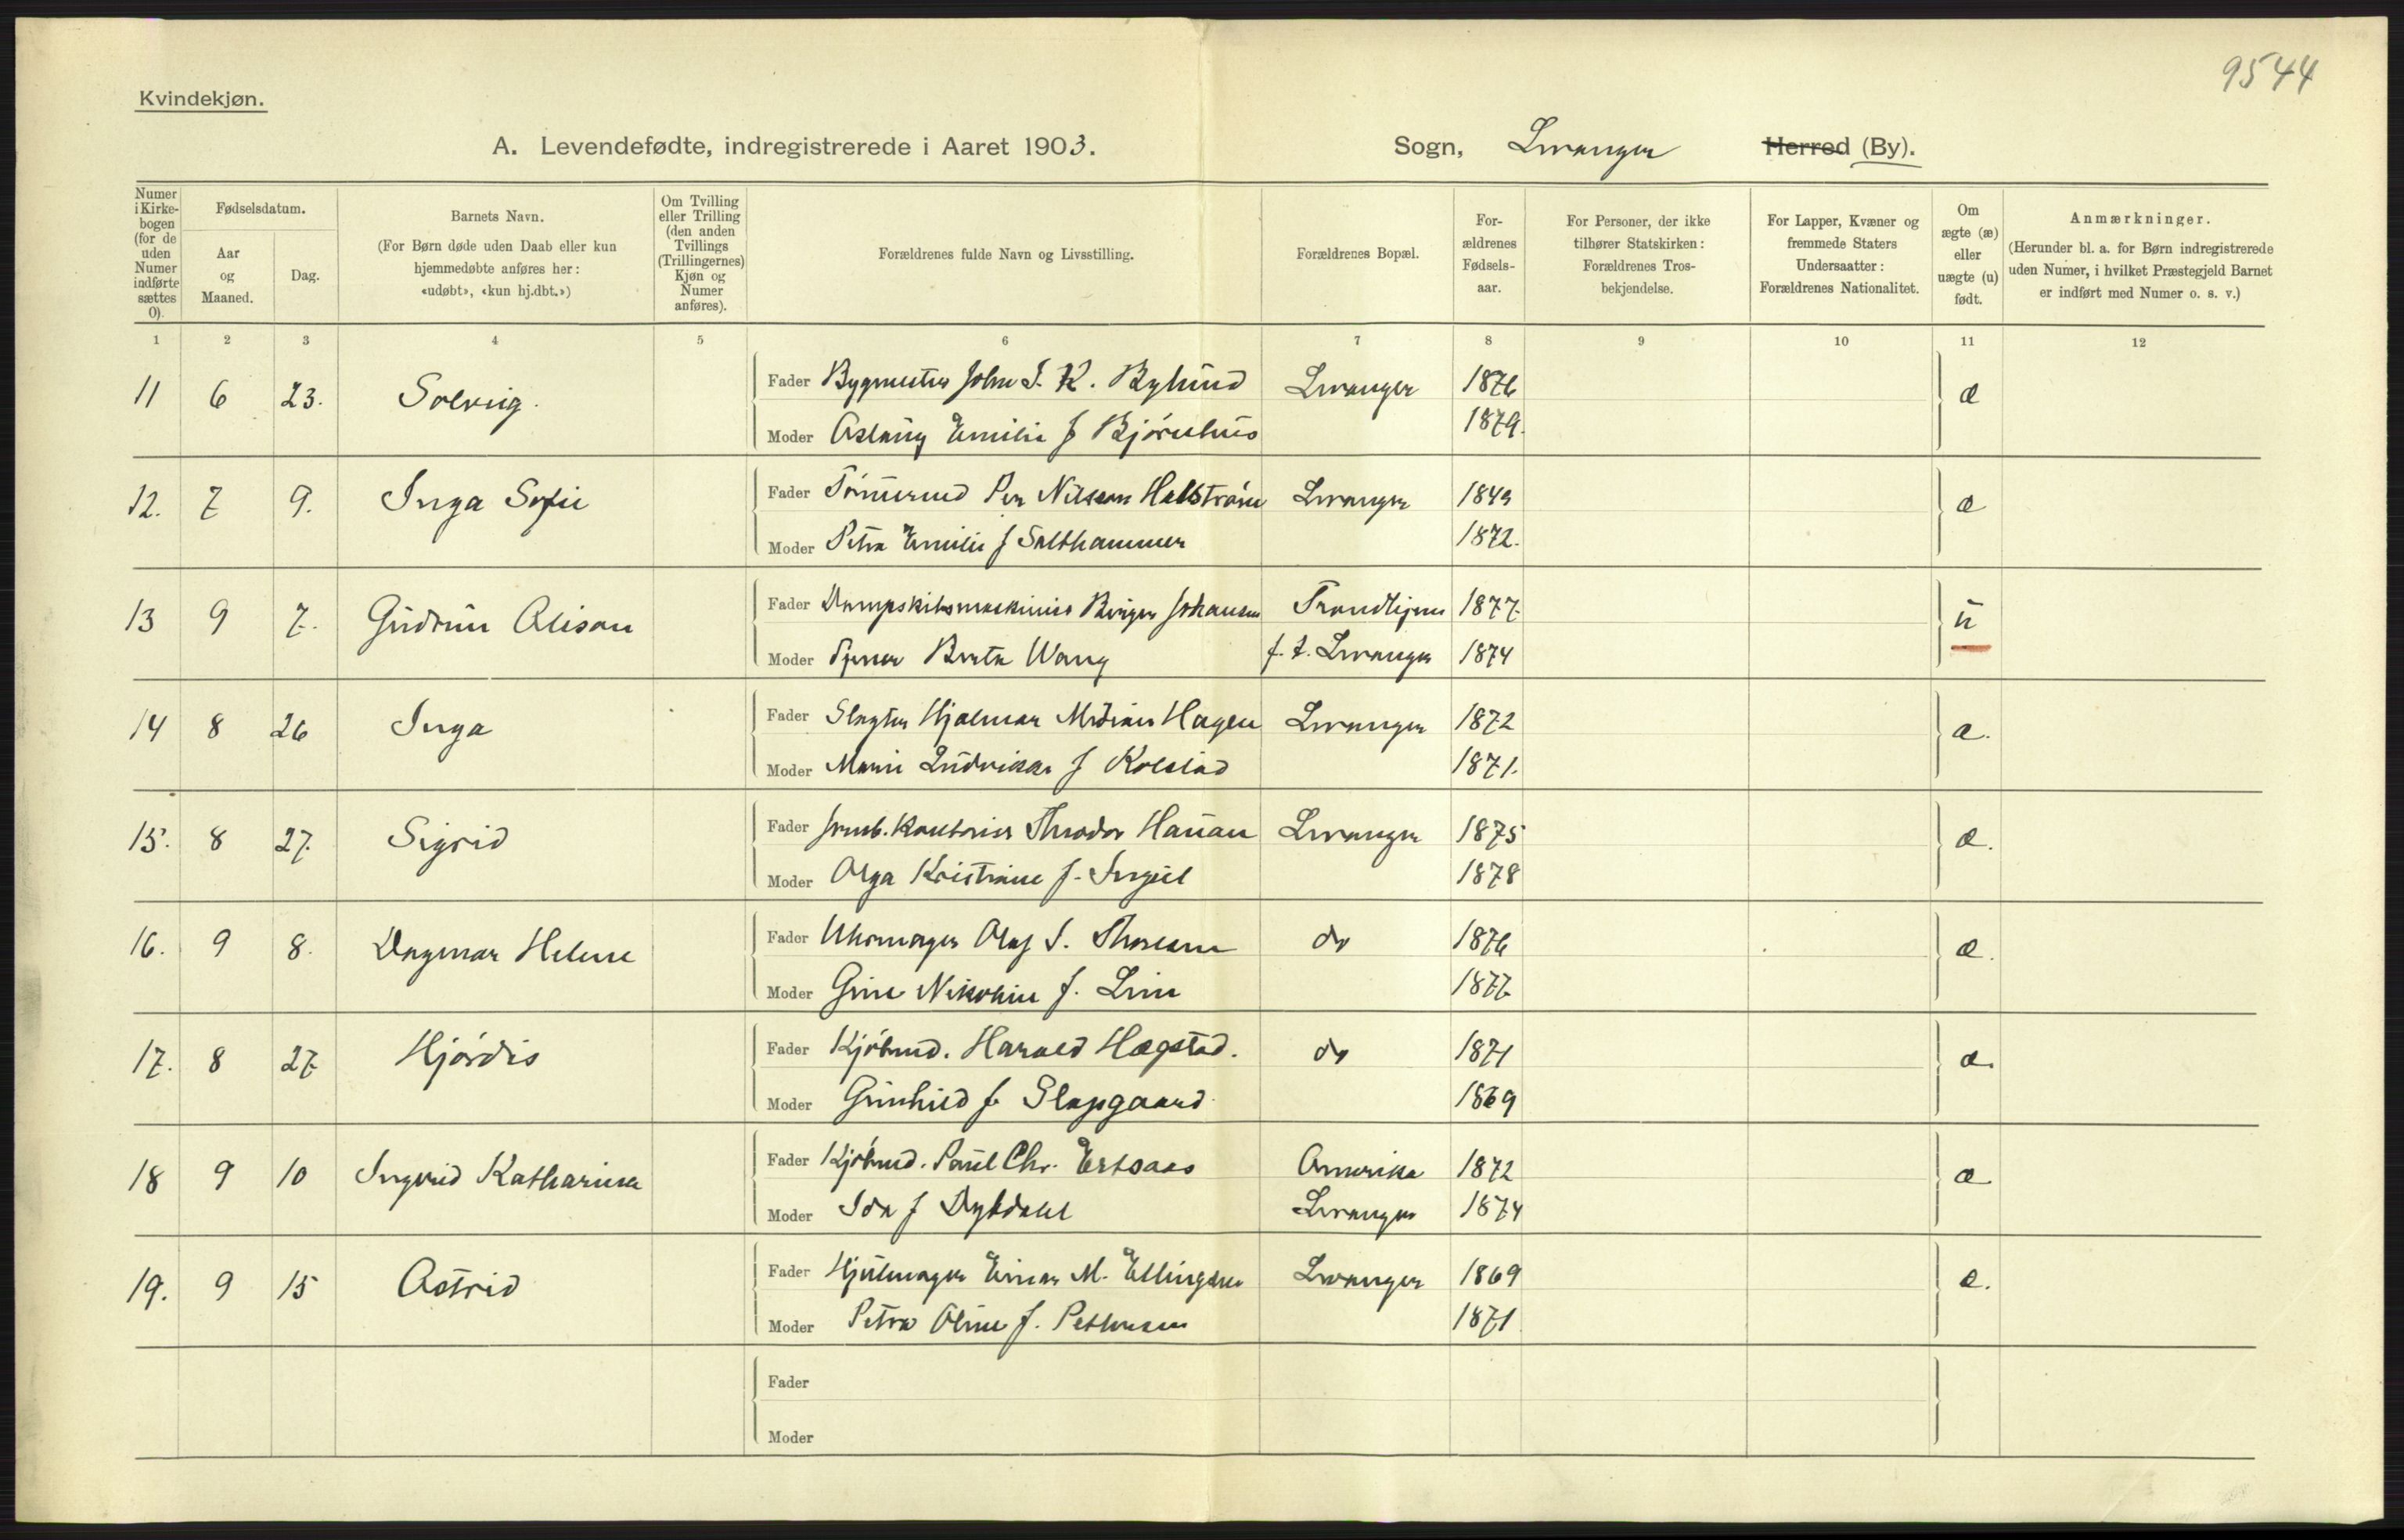 9544
Kvindekjøn.
A. Levendefødte, indregistrerede i Aaret 1903. Sogn, Levanger Herred (By).
Numer i Kirkebogen (for de uden Numer indførte sættes 0).
Fødselsdatum.
Aar og Maaned.
Dag.
Barnets Navn.
(For Børn døde uden Daab eller kun hjemmedøbte anføres her: «udøbt», «kun hj.dbt.»)
Om Tvilling eller Trilling (den anden Tvillings (Trillingernes) Kjøn og Numer anføres).
Forældrenes fulde Navn og Livsstilling.
Forældrenes Bopæl.
For-ældrenes Fødsels-aar.
For Personer, der ikke tilhører Statskirken: Forældrenes Tros-bekjendelse.
For Lapper, Kvæner og fremmede Staters Undersaatter: Forældrenes Nationalitet.
Om ægte (æ) eller uægte (u) født.
Anmærkninger.
(Herunder bl. a. for Børn indregistrerede uden Numer, i hvilket Præstegjeld Barnet er indført med Numer o. s. v.)
1 2 3 4 5 6 7 8 9 10 11 12
11 6 23. Solveig. Fader Bygmester John S. K. Bylund Levanger 1876 æ
Moder Aslaug Emilie f Björnhus 1879.
12. 7 9. Inga Sofie Fader Tömmermd Per Nilsson Hallström Levanger 1849 æ
Moder Petra Emilie f Salthammer 1872.
13 9 7. Gudrun Alison Fader Dampskibsmaskinist Birger Johansen Trondhjem 1877 u
Moder Tjener Berta Wang f. t. Levanger 1874
14 8 26 Inga Fader Slagter Hjalmar Hagen Levanger 1872 æ.
Moder Marie Ludvikka f Kolstad 1871.
15. 8 27. Sigrid Fader Jernb. Kontorist Theodor Hauan Levanger 1875 æ.
Moder Olga Kristiane f. 1878
16. 9 8. Dagmar Helene Fader Uhrmager Olaf S. Thoresen do 1876 æ.
Moder Gine Nikoline f. Lein 1877
17. 8 27 Hjördis Fader Kjöbmd. Harald Hægstad. do 1871 æ.
Moder Gunhild f. Slapgaard 1869
18 9 10 Ingrid Katharina Fader Kjöbmd. Paul Chr. Ertsaas Amerika 1872 æ
Moder Ida f Dybdahl Levanger 1874
19. 9 15 Astrid Fader Hjulmager Einar M. Ellingsen Levanger 1869 æ.
Moder Petra Oline f. Pettersen 1871
Fader
Moder